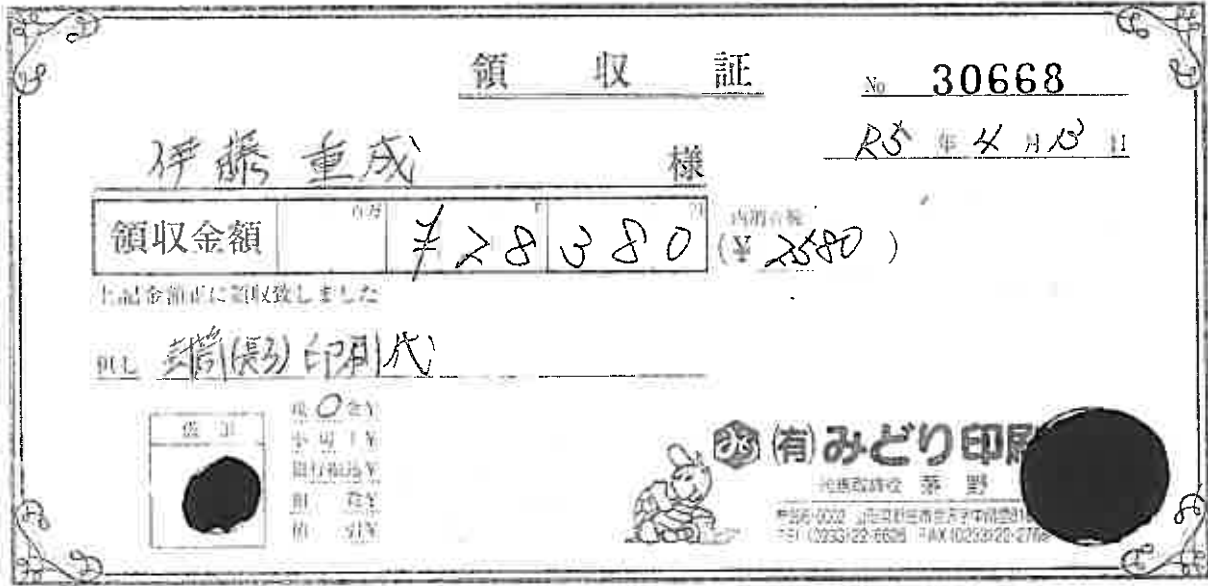 領収証
No 30668
伊藤重成 様
R5年4月13日
領収金額 百万 千 円 ¥28380
内消費税 (¥2580)
上記金額正に領収致しました
但し 封筒(長3)印刷代
現金¥
小切手¥
銀行振込¥
相殺¥
値引¥
(有)みどり印刷
代表取締役 茅野
TEL(0233)22-6626 FAX(0233)22-276